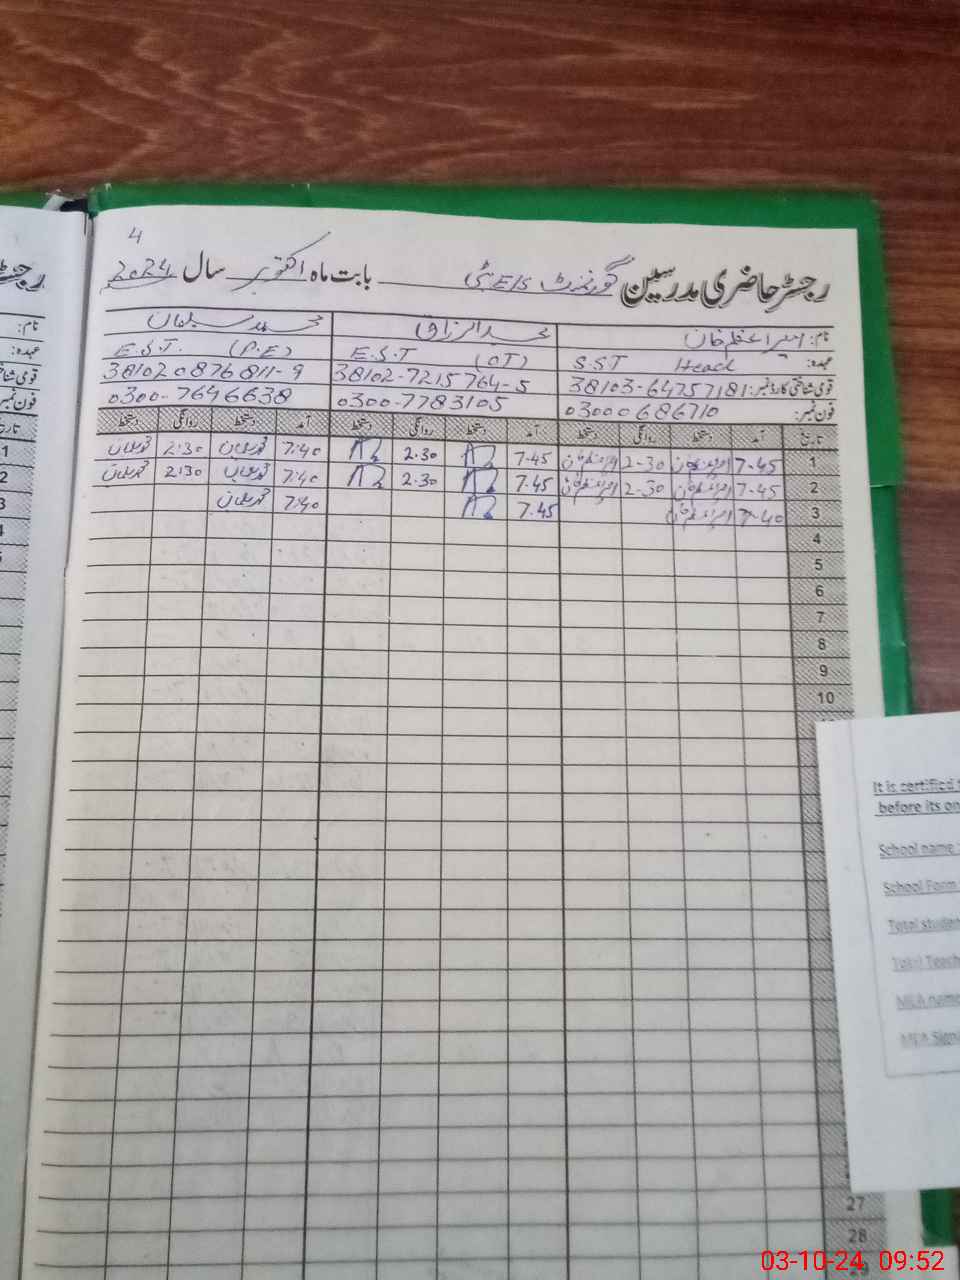 4
رجسٹر حاضری مدرسین گورنمنٹ E/S بابت ماہ اکتوبر سال 2024
نام: امیر اعظم خان عبدالرزاق محمد سلیمان
عہدہ: S.S.T Head E.S.T (OT) E.S.T. (P.E)
قومی شناختی کارڈ نمبر: 38103-64757181 38102-7215764-5 381020876811-9
فون نمبر: 03000686710 0300-7783105 0300-7646638
تاریخ آمد دستخط روانگی دستخط آمد دستخط روانگی دستخط آمد دستخط روانگی دستخط
1 7.45 امیر اعظم خان 2-30 امیر اعظم خان 7.45 2.30 7:40 محمد سلیمان 2:30 محمد سلیمان
2 7-45 امیر اعظم خان 2-30 امیر اعظم خان 7.45 2.30 7:40 محمد سلیمان 2:30 محمد سلیمان
3 7-40 امیر اعظم خان 7.45 7:40 محمد سلیمان
4
5
6
7
8
9
10
27
28
29
رجسٹر
نام:
عہدہ:
قومی شناختی
فون نمبر
تاریخ
1
2
3
4
5
It is certified
before its on
School name :
School Form
Total student
Total Teach
MEA name
MEA Sign
03-10-24 09:52